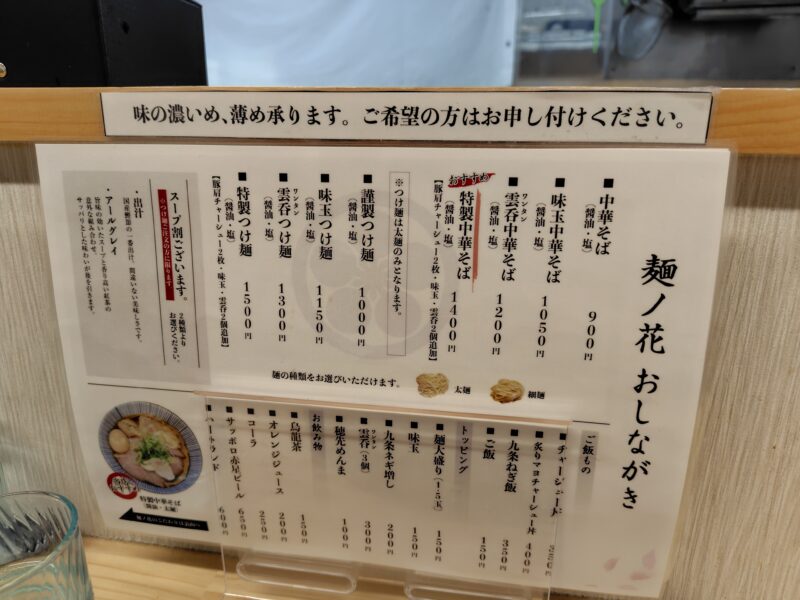 味の濃いめ、薄め承ります。ご希望の方はお申し付けください。
麺ノ花 おしながき
■中華そば
(醤油・塩)
900円
■味玉中華そば
(醤油・塩)
1050円
ワンタン
■雲呑中華そば
(醤油・塩)
1200円
おすすめ
■特製中華そば
(醤油・塩)
1400円
【豚肩チャーシュー2枚・味玉・雲呑2個追加】
※つけ麺は太麺のみとなります。
■謹製つけ麺
(醤油・塩)
1000円
■味玉つけ麺
(醤油・塩)
1150円
ワンタン
■雲呑つけ麺
(醤油・塩)
1300円
■特製つけ麺
(醤油・塩)
1500円
【豚肩チャーシュー2枚・味玉・雲呑2個追加】
スープ割ございます。
2種類より
お選びください。
※つけ麺ご注文の方に限ります
・出汁
国産鰹節の一番出汁。間違いない美味しさです。
・アールグレイ
旨味の効いたスープと香り高い紅茶の
意外な組み合わせ。
サッパリとした味わいが後を引きます。
麺の種類をお選びいただけます。
太麺
細麺
ご飯もの
■チャーシュー丼
■炙りマヨチャーシュー丼
400円
■九条ねぎ飯
350円
■ご飯
150円
トッピング
■麺大盛り(1.5玉)
150円
■味玉
150円
■九条ネギ増し
200円
ワンタン
■雲呑(3個)
300円
■穂先めんま
100円
お飲み物
■烏龍茶
150円
■オレンジジュース
200円
■コーラ
250円
■サッポロ赤星ビール
650円
■ハートランド
600円
特製中華そば
(醤油・太麺)